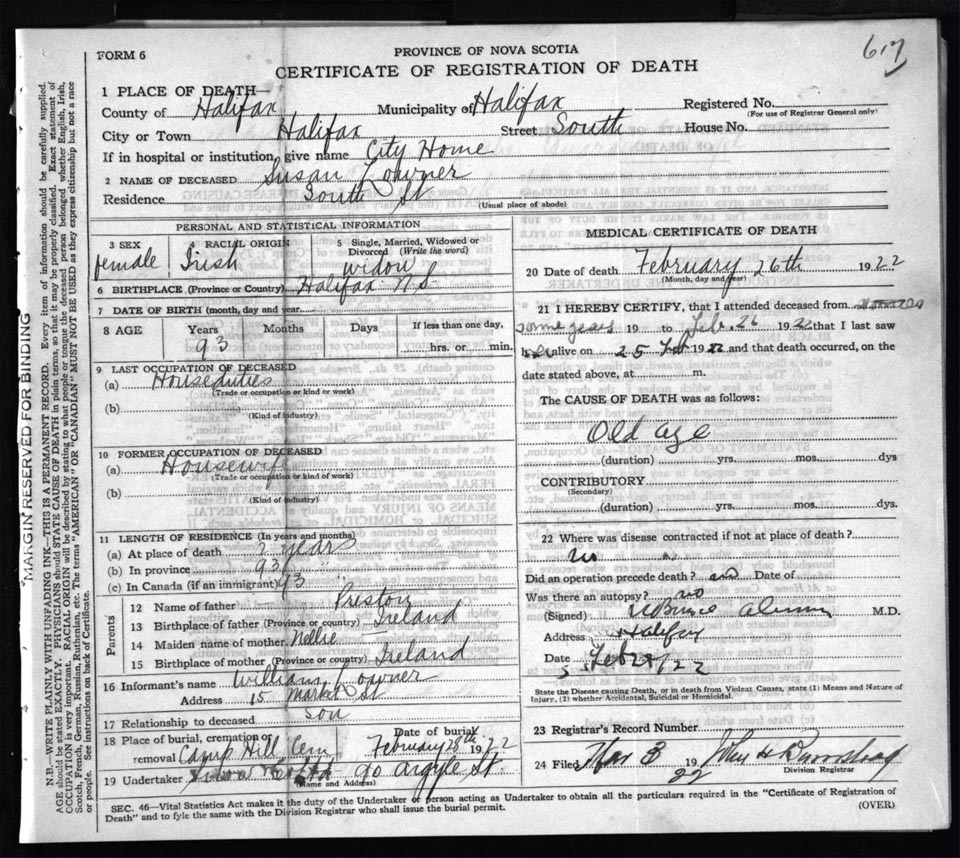 617
FORM 6
PROVINCE OF NOVA SCOTIA
CERTIFICATE OF REGISTRATION OF DEATH
1 PLACE OF DEATH—
County of Halifax Municipality of Halifax Registered No.
(For use of Registrar General only)
City or Town Halifax Street South House No.
If in hospital or institution, give name City Home
2 NAME OF DECEASED Susan Lowner
Residence South St
(Usual place of abode)
PERSONAL AND STATISTICAL INFORMATION
3 SEX 4 RACIAL ORIGIN 5 Single, Married, Widowed or Divorced (Write the word)
female Irish widow
6 BIRTHPLACE (Province or Country) Halifax N.S.
7 DATE OF BIRTH (month, day and year)
8 AGE Years Months Days If less than one day,
93 hrs. or min.
9 LAST OCCUPATION OF DECEASED
(a) Houseduties
(Trade or occupation or kind or work)
(b)
(Kind of industry)
10 FORMER OCCUPATION OF DECEASED
(a) Housewife
(Trade or occupation or kind or work)
(b)
(Kind of industry)
11 LENGTH OF RESIDENCE (In years and months)
(a) At place of death years
(b) In province 93 "
(c) In Canada (if an immigrant) 93 "
Parents
12 Name of father — Preston
13 Birthplace of father (Province or country) Ireland
14 Maiden name of mother Nellie —
15 Birthplace of mother (Province or country) Ireland
16 Informant's name William Lowner
Address 15 Market St
17 Relationship to deceased son
18 Place of burial, cremation or removal Camp Hill Cem Date of burial February 28th 1922
19 Undertaker 90 Argyle St.
(Name and Address)
MEDICAL CERTIFICATE OF DEATH
20 Date of death February 26th 1922
(Month, day and year)
21 I HEREBY CERTIFY, that I attended deceased from
some years 19 to Feb. 26 1922 that I last saw
her alive on 25 Feb 1922 and that death occurred, on the
date stated above, at m.
The CAUSE OF DEATH was as follows:
Old age
(duration) yrs. mos. dys
CONTRIBUTORY
(Secondary)
(duration) yrs. mos. dys.
22 Where was disease contracted if not at place of death?
Did an operation precede death? no Date of
Was there an autopsy? no
(Signed) M.D.
Address Halifax
Date Feb 28/22
State the Disease causing Death, or in death from Violent Causes, state (1) Means and Nature of
Injury, (2) whether Accidental, Suicidal or Homicidal.
23 Registrar's Record Number
24 Filed Mar 3 1922
Division Registrar
SEC. 46—Vital Statistics Act makes it the duty of the Undertaker or person acting as Undertaker to obtain all the particulars required in the "Certificate of Registration of
Death" and to fyle the same with the Division Registrar who shall issue the burial permit.
(OVER)
MARGIN RESERVED FOR BINDING
N.B.—WRITE PLAINLY WITH UNFADING INK—THIS IS A PERMANENT RECORD. Every item of information should be carefully supplied.
AGE should be stated EXACTLY. PHYSICIANS should STATE CAUSE OF DEATH in plain terms, so that it may be properly classified. Exact statement of
OCCUPATION is very important. RACIAL ORIGIN will be described by stating to what people or tongue the deceased person belonged whether English, Irish,
Scotch, French, German, Russian, Ruthenian, etc. The terms "AMERICAN" OR "CANADIAN" MUST NOT BE USED as they express citizenship but not a race
or people. See instructions on back of Certificate.